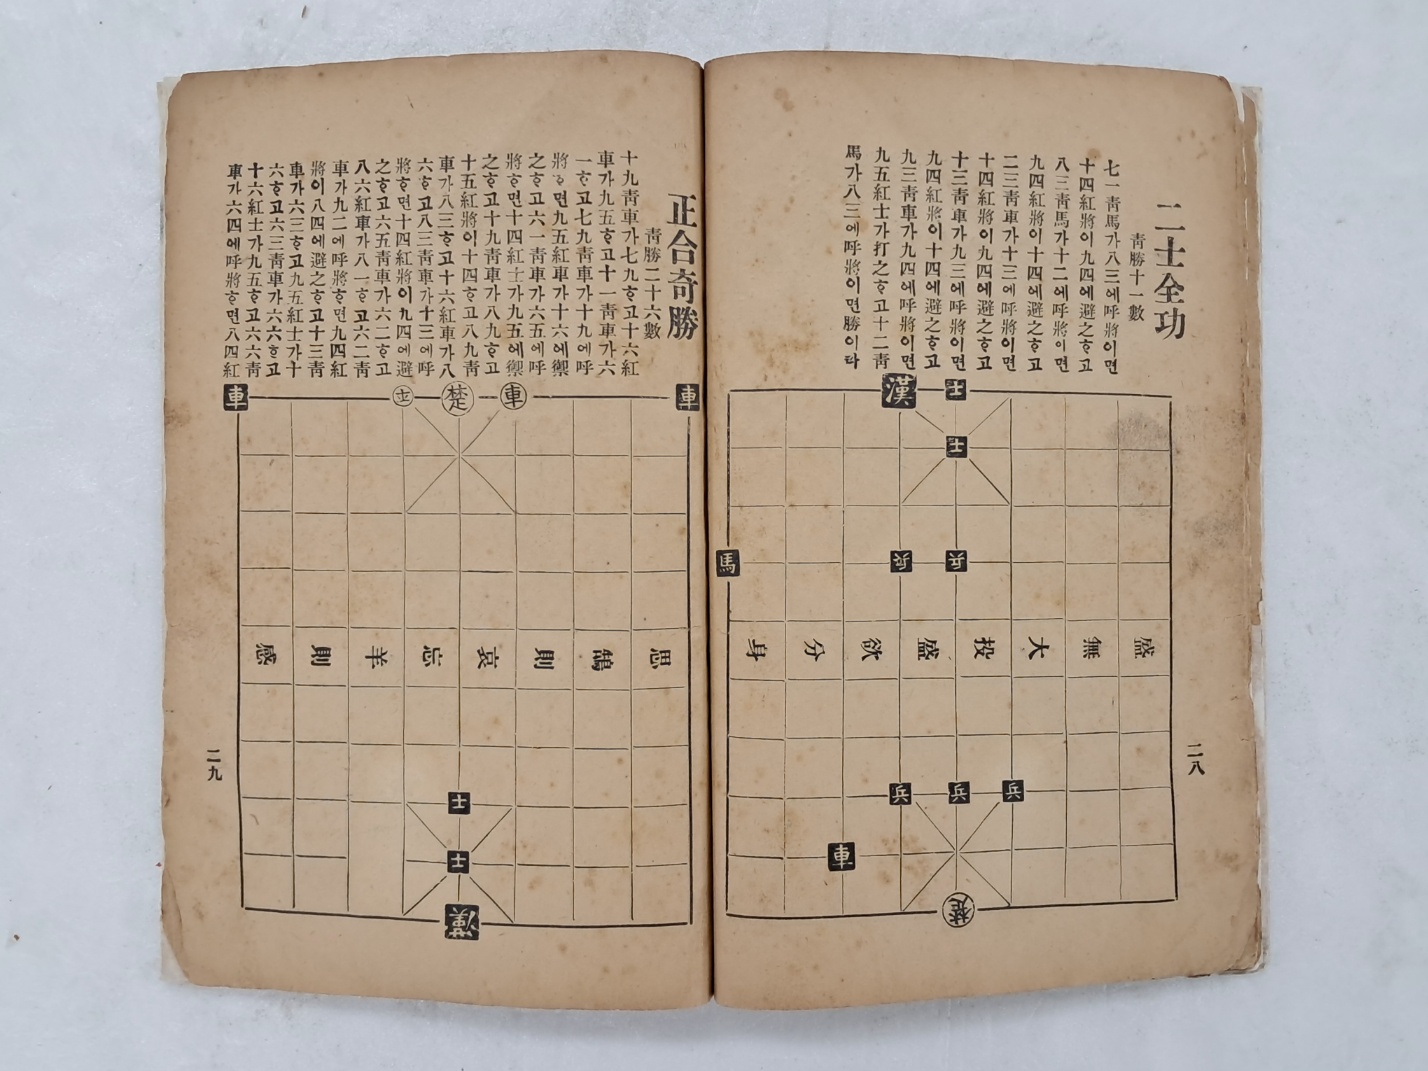 二士全功
靑勝十一數
七一靑馬가八三에呼將이면
十四紅將이九四에避之ᄒᆞ고
八三靑馬가十二에呼將이면
九四紅將이十四에避之ᄒᆞ고
二三靑車가十三에呼將이면
十四紅將이九四에避之ᄒᆞ고
十三靑車가九三에呼將이면
九四紅將이十四에避之ᄒᆞ고
九三靑車가九四에呼將이면
九五紅士가打之ᄒᆞ고十二靑
馬가八三에呼將이면勝이라
漢 士
士
馬 兵 兵
盛無大投盛欲分身
兵 兵 兵
車
楚
二八
正合奇勝
靑勝二十六數
十九靑車가七九ᄒᆞ고十六紅
車가九五ᄒᆞ고十一靑車가六
一ᄒᆞ고七九靑車가十九에呼
將ᄒᆞ면九五紅車가十六에禦
之ᄒᆞ고六一靑車가六五에呼
將ᄒᆞ면十四紅士가九五에禦
之ᄒᆞ고十九靑車가八九ᄒᆞ고
十五紅將이十四ᄒᆞ고八九靑
車가八三ᄒᆞ고十六紅車가八
六ᄒᆞ고八三靑車가十三에呼
將ᄒᆞ면十四紅將이九四에避
之ᄒᆞ고六五靑車가六二ᄒᆞ고
八六紅車가八一ᄒᆞ고六二靑
車가九二에呼將ᄒᆞ면九四紅
將이八四에避之ᄒᆞ고十三靑
車가六三ᄒᆞ고九五紅士가十
六ᄒᆞ고六三靑車가六六ᄒᆞ고
十六紅士가九五ᄒᆞ고六六靑
車가六四에呼將ᄒᆞ면八四紅
車 士 楚 車 車
思鵠則哀忘羊則感
士
士
漢
二九